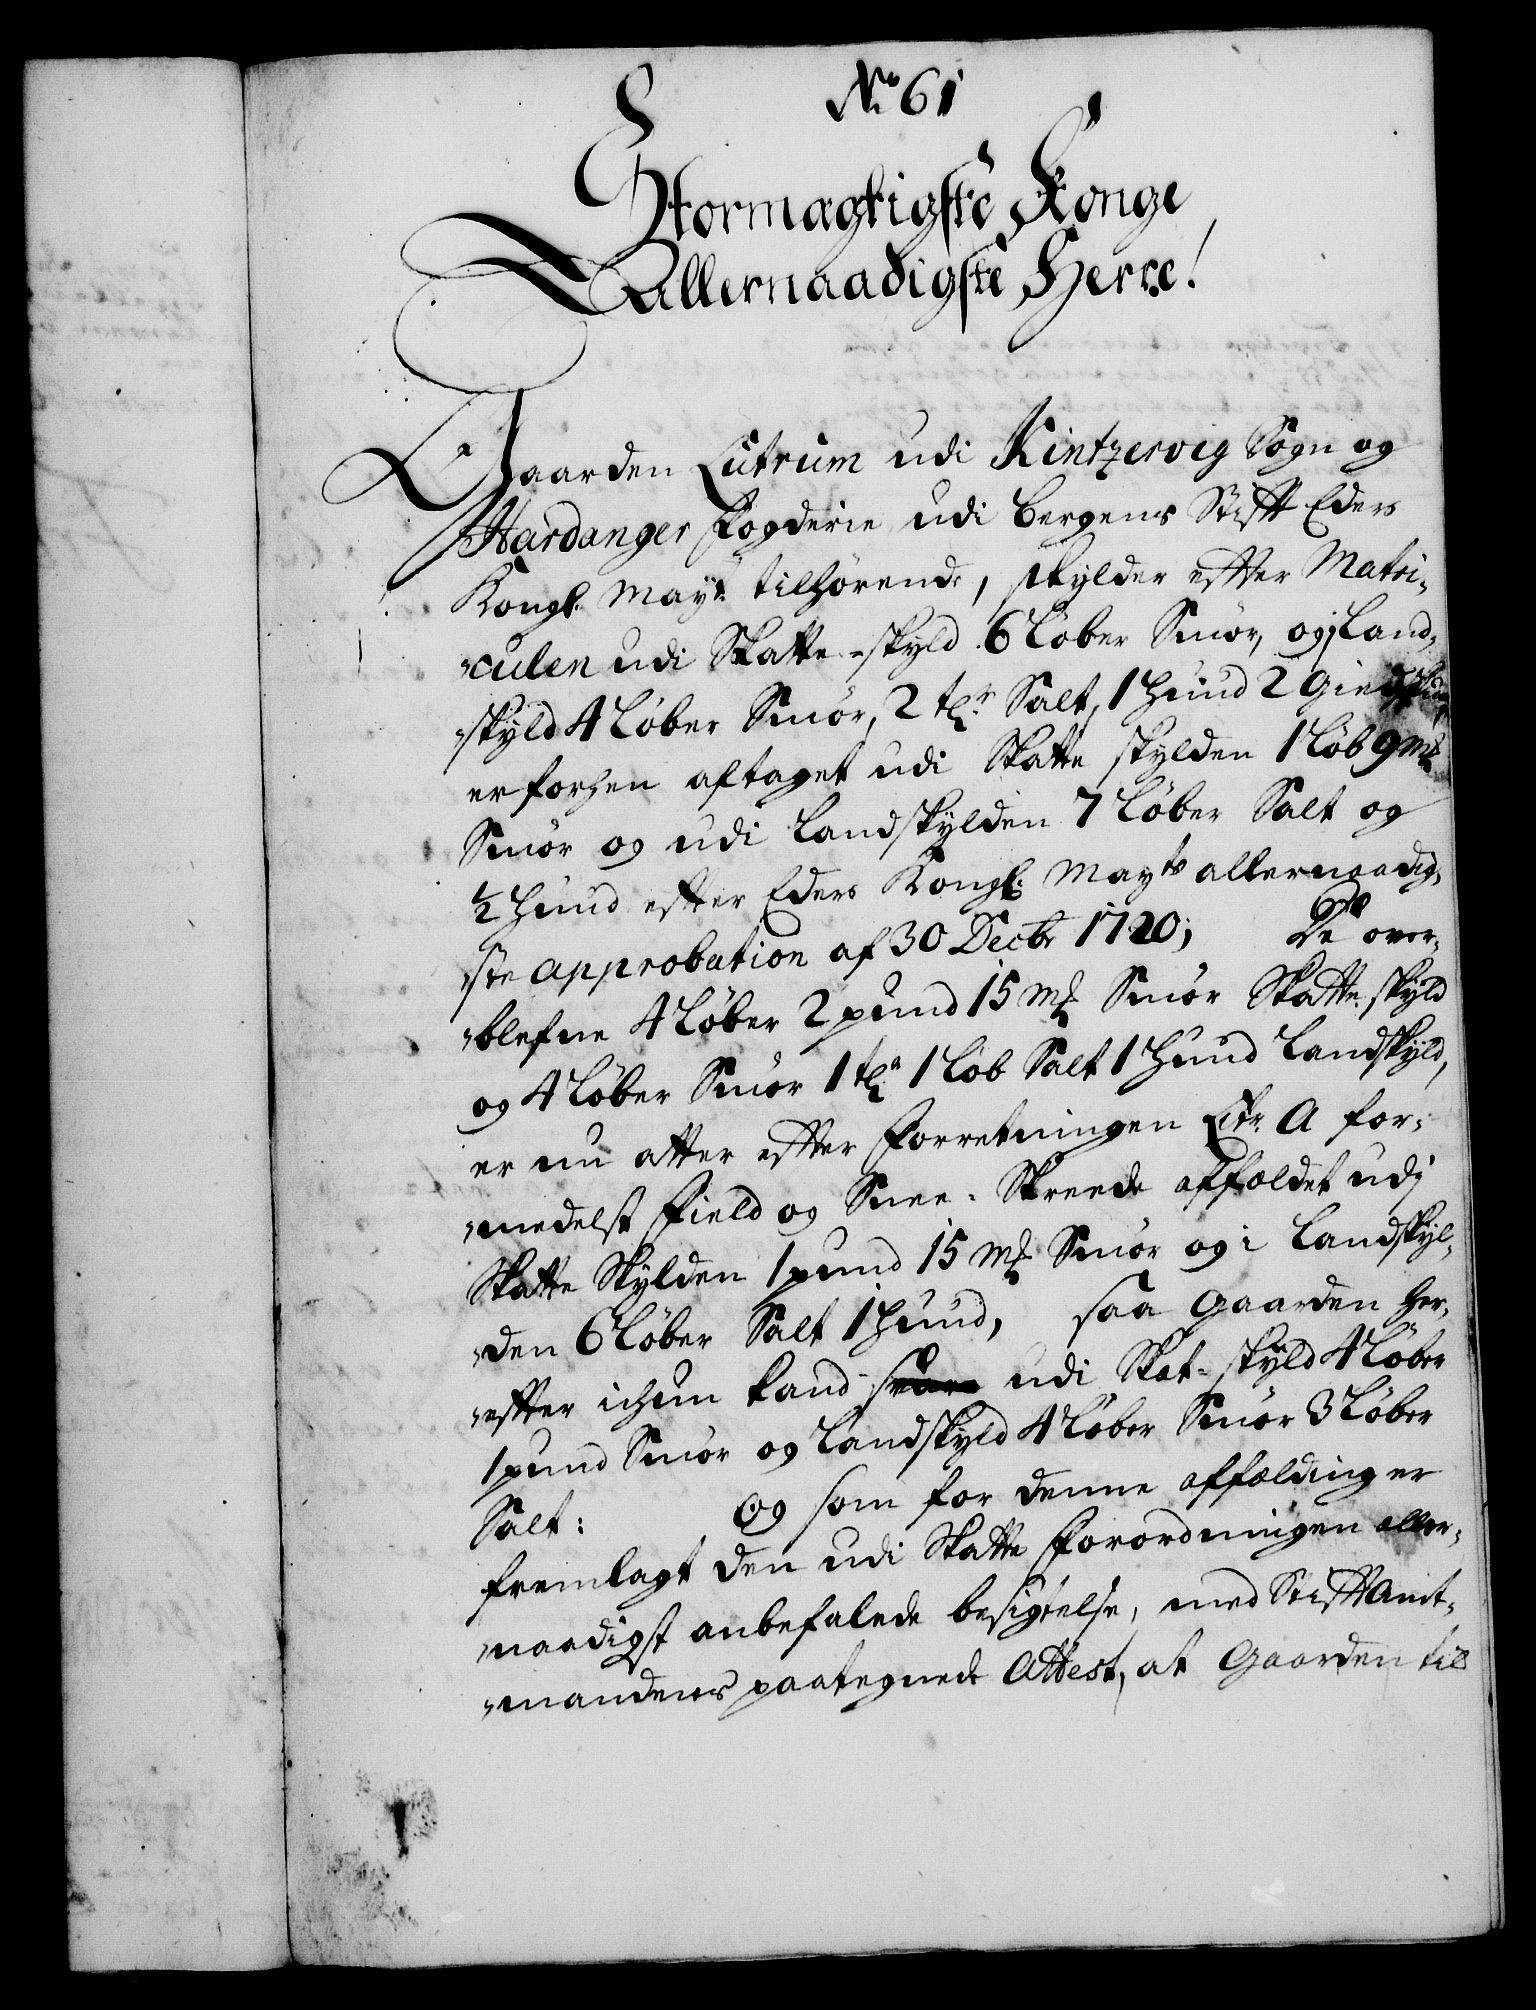 No 61
Stormægtigste Konge
Allernaadigste Herre!
Gaarden Lutrum udi Kintzervig Sogn og
Hardanger Fogderie udi Bergens Stift Eders
Kongl: Mayt: tilhørende, skylder efter Matri-
culen udi Skatte-skyld 6 Løber Smør, og Land-
skyld 4 Løber Smør, 2 tdr Salt, 1 Huud 2 Giedskind
er forhen aftaget udi Skatte skylden 1 Løb 9 Mk
Smør og udi Landskylden 7 Løber Salt og
½ Huud efter Eders Kongl: Mayts allernaadig-
ste approbation af 30 Decbr 1720; De over-
blefne 4 Løber 2 pund 15 Mk Smør Skatte skyld
og 4 Løber Smør 1 tde 1 Løb Salt 1 Huud Landskyld,
er nu atter efter Forretningen Litr. A for-
medelst Field og Snee-Skreede affældet udj
Skatte Skylden 1 pund 15 Mk Smør og i Landskyl-
den 6 Løber Salt 1 Huud, saa Gaarden her-
efter ichun kand svare udi Skat-skyld 4 Løber
1 pund Smør og Landskyld 4 Løber Smør 3 Løber
Salt: Og som for denne affælding er
fremlagt den udi Skatte Forordningen aller-
naadigst anbefalede besigtelse, med StiftAmt-
mandens paategnede Attest, at Gaarden til